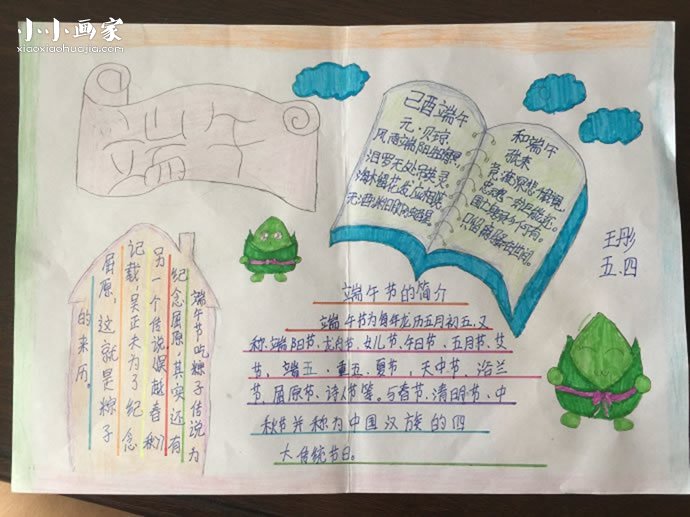 小小画家
xiaoxiaohuajia.com
端午
己酉端午
元·贝琼
风雨端阳生晦冥,
汨罗无处吊英灵。
海榴花发应相笑,
无酒渊明亦独醒。
和端午
张耒
竞渡深悲千载冤,
忠魂一去讵能还。
国亡身殒今何有,
只留离骚在世间。
王彤
五.四
端午节吃粽子传说为
纪念屈原,其实还有
另一个传说
记载,吴正未为了纪念
屈原,这就是粽子
的来历。
端午节的简介
端午节为每年农历五月初五,又
称端阳节、午日节、五月节、艾
节、端五、重五、夏节,天中节、浴兰
节、屈原节、诗人节等。与春节、清明节、中
秋节并称为中国汉族的四
大传统节日。